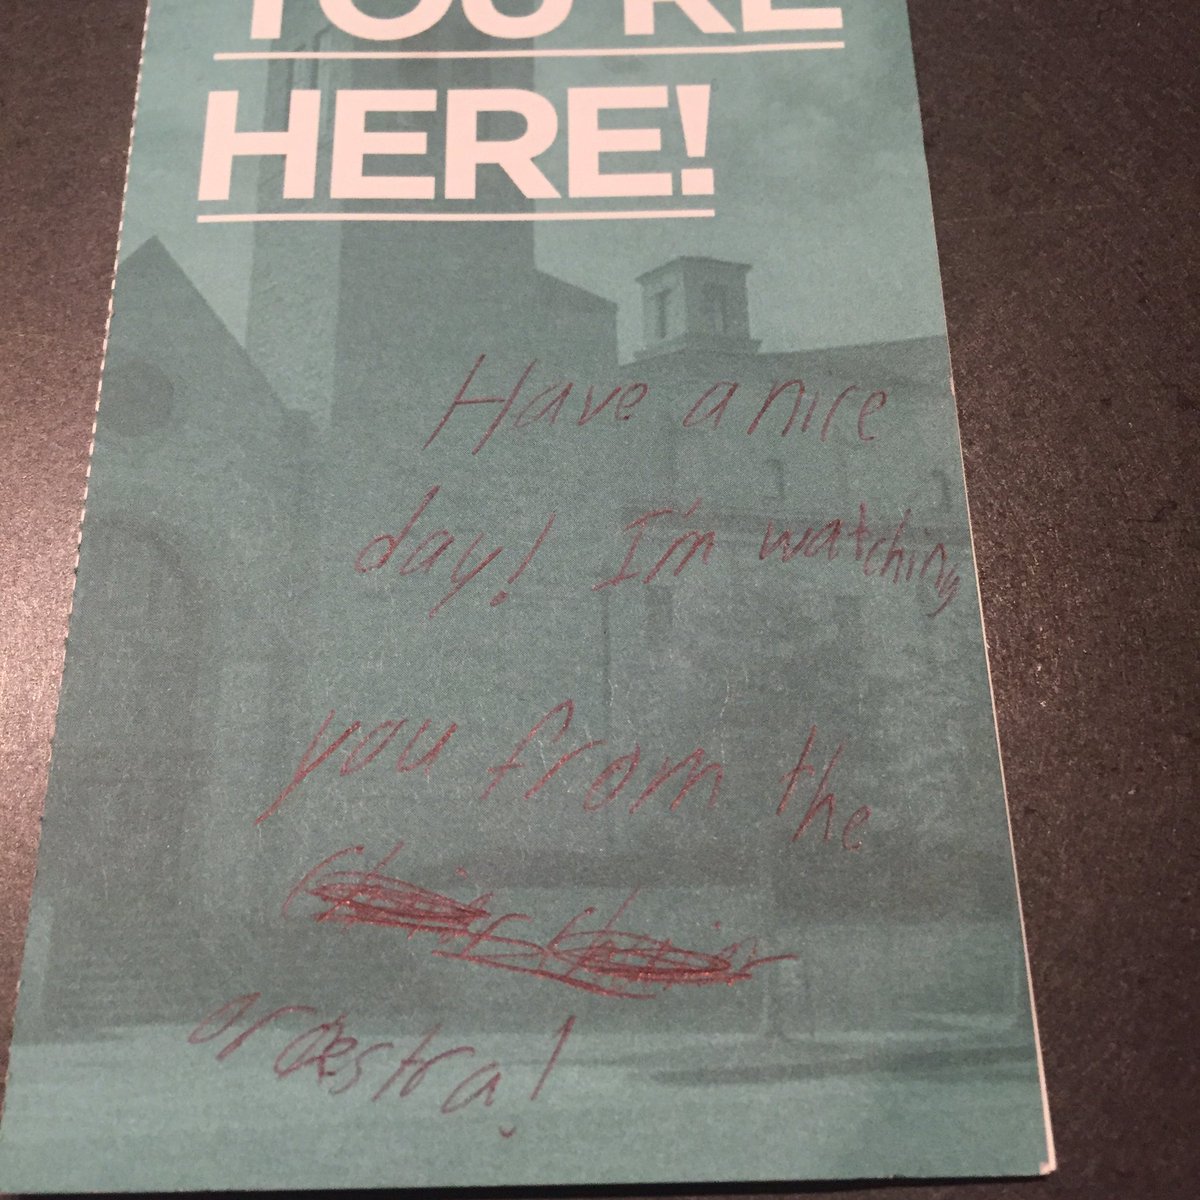 YOU'RE
HERE!
Have a nice
day! I'm watching
you from the
orcestra!